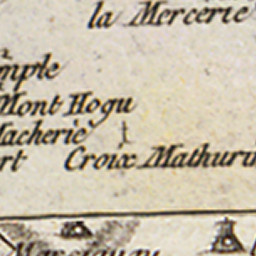 la Mercerie
mple
Mont Hogu
Macherie
rt Croix Mathurin